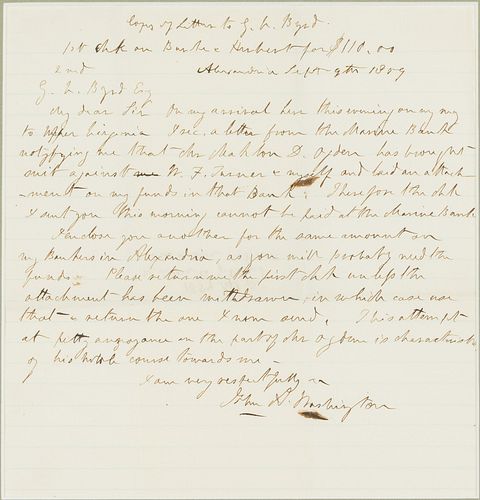 Copy of Letter to G. L. Byrd.
1st chk on Burke & Herbert for $110.00
2nd Alexandria Sept 9th 1859
G. L. Byrd Esq
My dear Sir On my arrival here this evening on my way
to Upper Virginia I rec. a letter from the Marine Bank
notifying me that Mr Mahlon D. Ogden has brought
suit against W. F. Turner & myself and laid an attach
-ment on my funds in that Bank. Therefore the chk
I sent you this morning cannot be paid at the Marine Bank
I enclose you another for the same amount on
my Bankers in Alexandria as you will probably need the
funds. Please return me the first chk unless the
attachment has been withdrawn, in which case use
that & return the one I now send. This attempt
at petty annoyance on the part of Mr Ogden is characteristic
of his whole course towards me -
I am very respectfully
John A. Washington